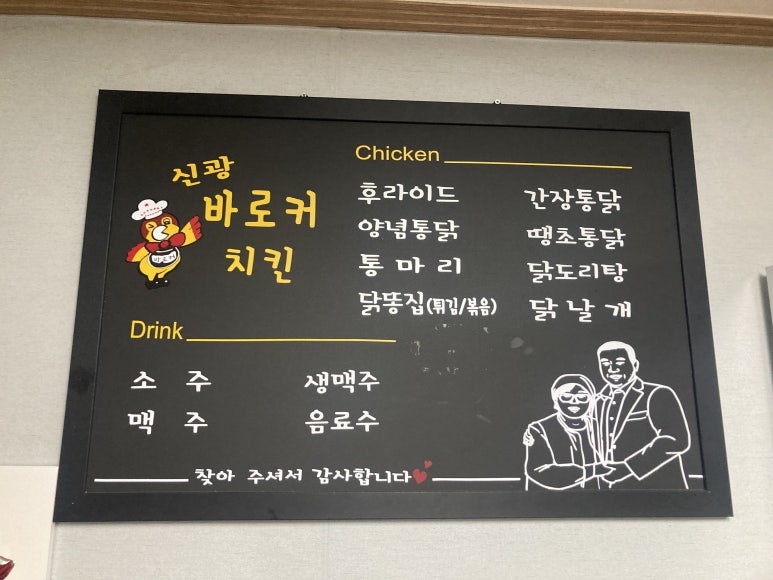 신광
바로커
치킨
바로커
Chicken
후라이드 간장통닭
양념통닭 땡초통닭
통 마 리 닭도리탕
닭똥집(튀김/볶음) 닭 날 개
Drink
소 주 생맥주
맥 주 음료수
찾아 주셔서 감사합니다